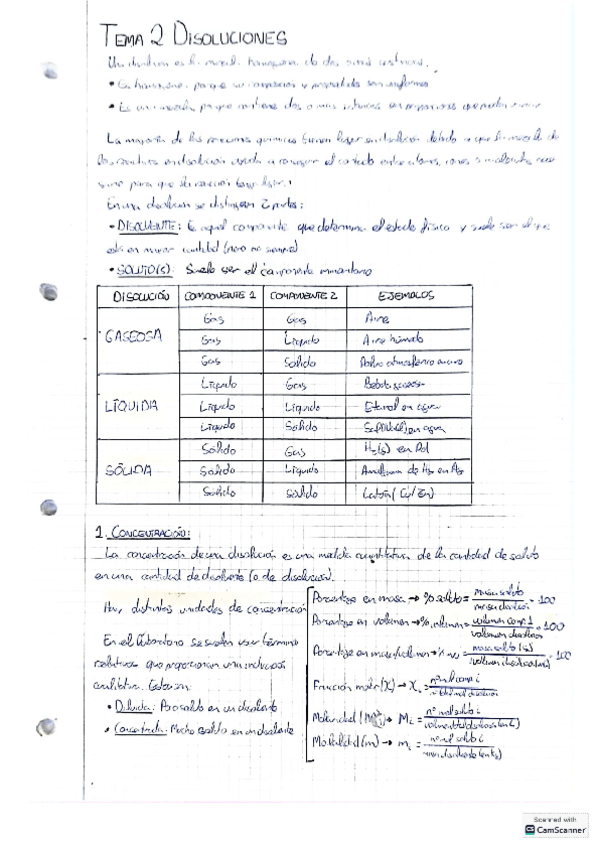 TEMA 2 DISOLUCIONES
Una disolución es la mezcla homogénea de dos o más sustancias.
• Es homogénea porque su composición y propiedades son uniformes
• Es una mezcla porque contiene dos o más sustancias en proporciones que pueden variar
La mayoría de los procesos químicos tienen lugar en disolución debido a que la mezcla de
los en disolución ayuda a conseguir el contacto entre átomos, iones o moléculas
para que la reacción tenga lugar.
En una disolución se distinguen 2 partes:
• DISOLVENTE: Es aquel componente que determina el estado físico y suele ser el que
está en mayor cantidad (pero no siempre)
• SOLUTO(S): Suele ser el componente minoritario
DISOLUCIÓN COMPONENTE 1 COMPONENTE 2 EJEMPLOS
GASEOSA
Gas Gas Aire
Gas Líquido Aire húmedo
Gas Sólido Polvo atmosférico en aire
LÍQUIDA
Líquido Gas Bebida gaseosa
Líquido Líquido Etanol en agua
Líquido Sólido en agua
SÓLIDA
Sólido Gas H₂(g) en Pd
Sólido Líquido Amalgama de Hg en Ag
Sólido Sólido Latón (Cu/Zn)
1. CONCENTRACIÓN:
La concentración de una disolución es una medida cuantitativa de la cantidad de soluto
en una cantidad de disolvente (o de disolución).
Hay distintas unidades de concentración
Porcentaje en masa → % soluto = masa soluto / masa disolución · 100
Porcentaje en volumen → % volumen = volumen comp. i / volumen disolución · 100
Porcentaje en masa/volumen → % m/v = masa soluto (g) / volumen disolución (mL) · 100
Fracción molar (X) → Xi = nº mol comp i / nº total mol disolución
Molaridad (M) → Mi = nº mol soluto i / volumen disolución (L)
Molalidad (m) → mi = nº mol soluto i / masa disolvente (kg)
En el laboratorio se suelen usar términos
relativos que proporcionan una indicación
cualitativa. Estos son:
• Diluida: Poco soluto en un disolvente
• Concentrada: Mucho soluto en un disolvente
Scanned with
CamScanner